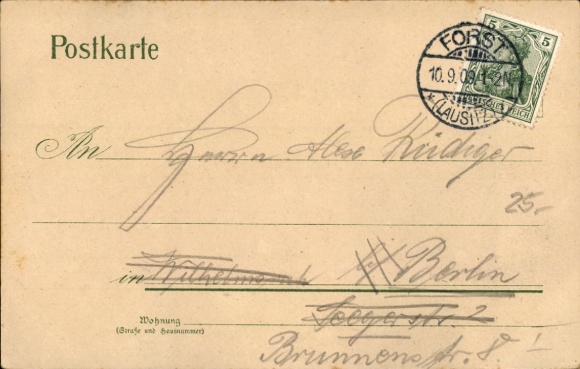 Postkarte
FORST
10.9.09. 1-2N
*(LAUSITZ)
5 5
DEUTSCHES REICH
An Herrn Alex Rüdiger
25.-
in Wilhelmsruh b/ Berlin
Wohnung
(Straße und Hausnummer)
Seegerstr. 2
Brunnenstr. 8!